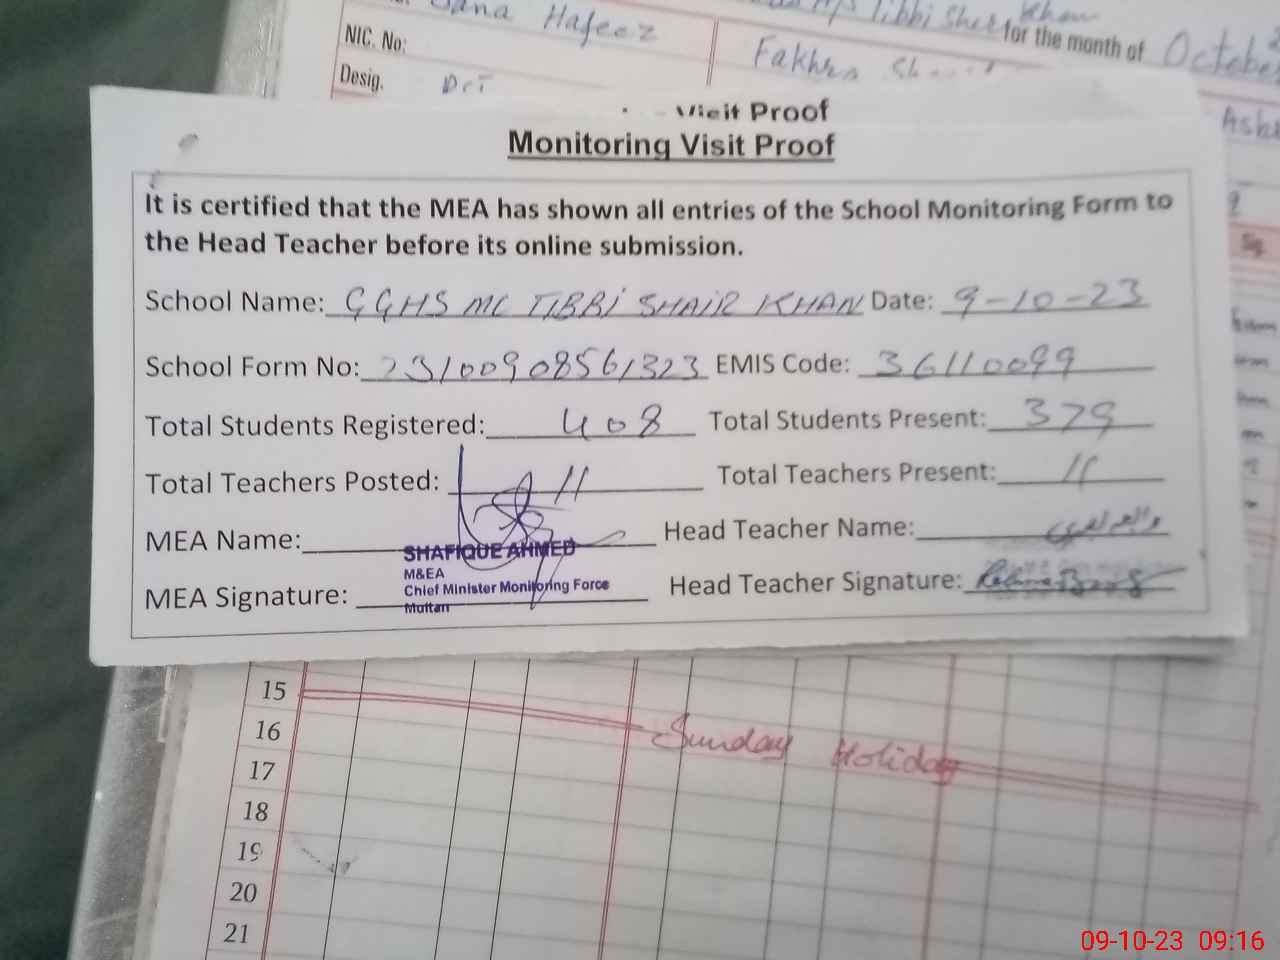 Sana Hafeez
Khan
Tibbi Sher for the month of October
NIC. No:
Fakhra
Desig.
Visit Proof
Monitoring Visit Proof
It is certified that the MEA has shown all entries of the School Monitoring Form to
the Head Teacher before its online submission.
School Name: GGHS MC TIBBI SHAIR KHAN Date: 9-10-23
School Form No: 23100908561323 EMIS Code: 36110099
Total Students Registered: 408 Total Students Present: 379
Total Teachers Posted: 11 Total Teachers Present: 11
MEA Name: Head Teacher Name:
SHAFIQUE AHMED
M&EA
Chief Minister Monitoring Force
Multan
MEA Signature: Head Teacher Signature:
Sig
15
16 Sunday Holiday
17
18
19
20
21
09-10-23 09:16